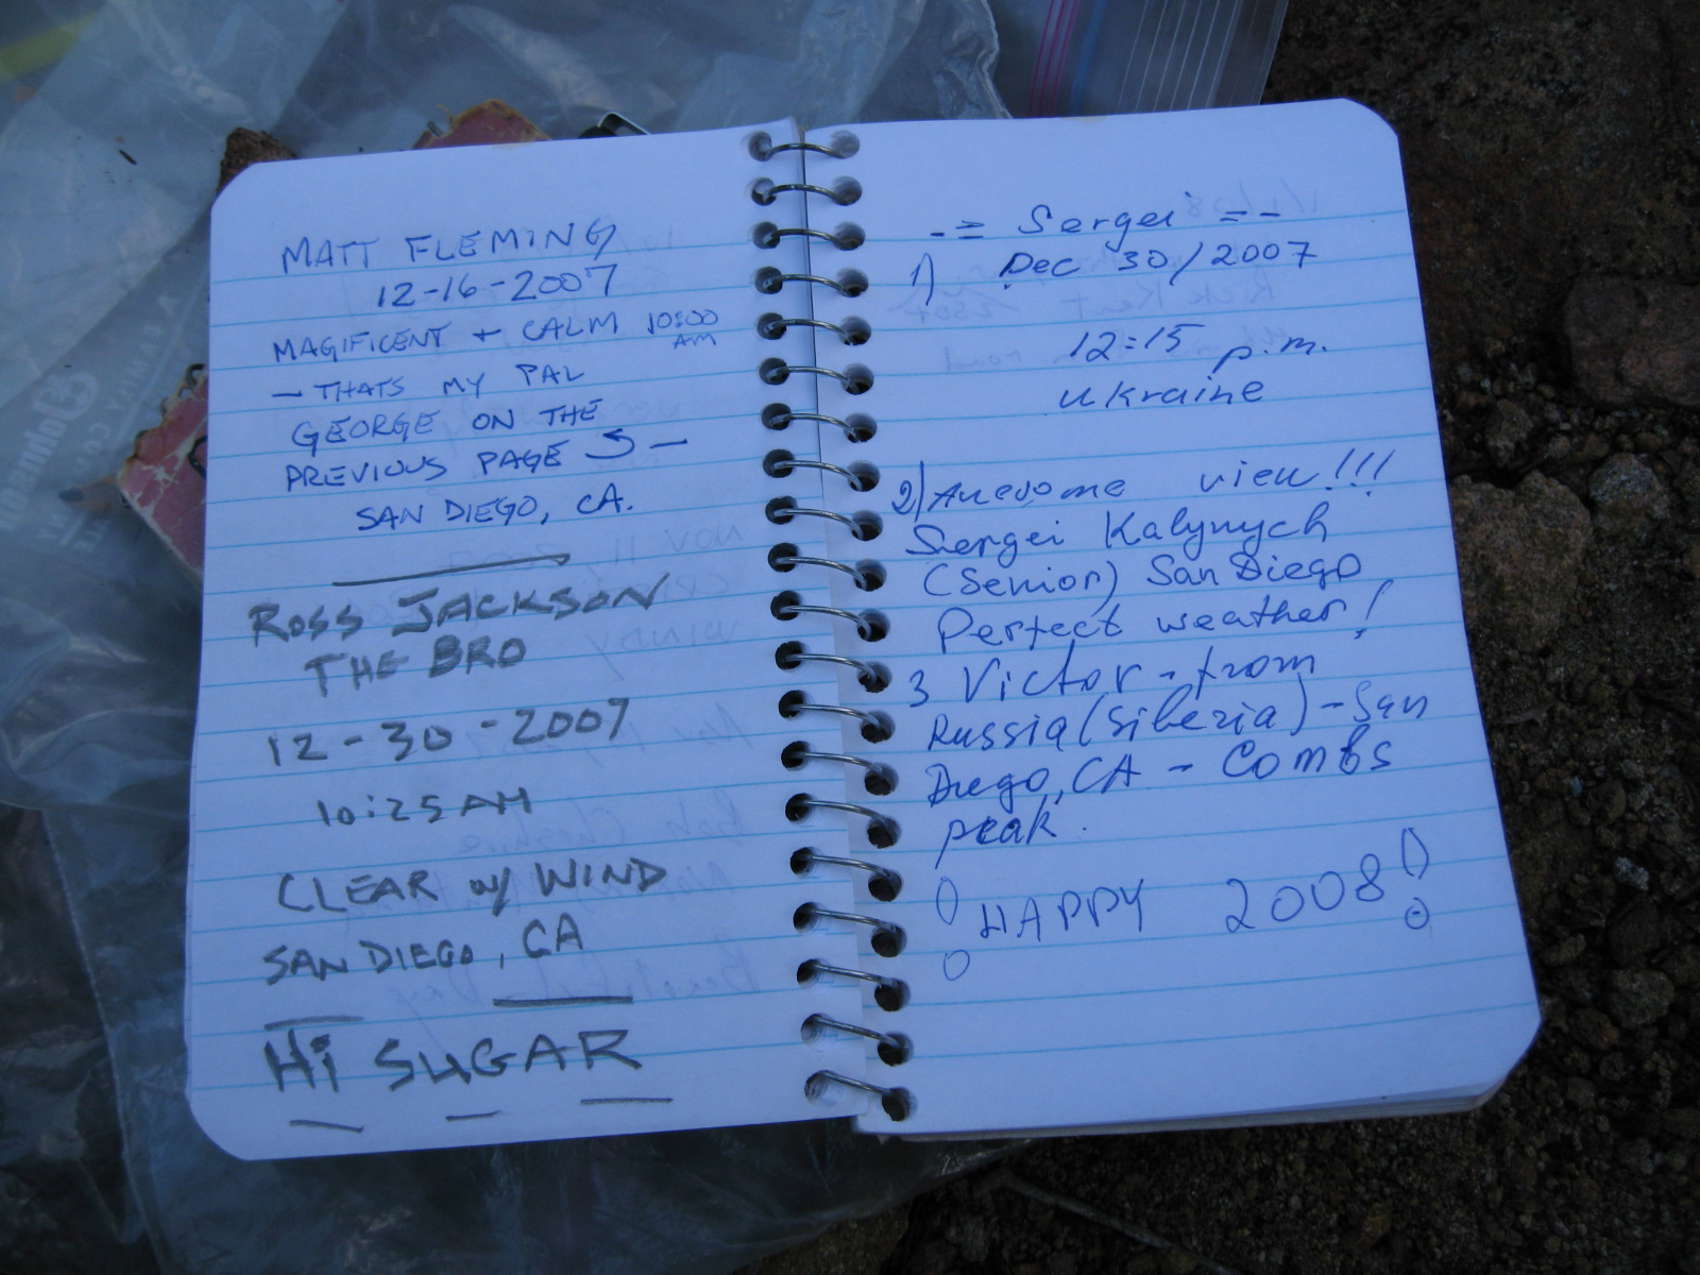 MATT FLEMING
12-16-2007
MAGIFICENT + CALM 10:00 AM
- THATS MY PAL
GEORGE ON THE
PREVIOUS PAGE -
SAN DIEGO, CA.
ROSS JACKSON
THE BRO
12-30-2007
10:25 AM
CLEAR w/ WIND
SAN DIEGO, CA
Hi SUGAR
-= Sergei =-
1) Dec 30/2007
12:15 p.m.
Ukraine
2) Awesome view!!!
Sergei Kalynych
(Senior) San Diego
Perfect weather!
3 Victor - from
Russia (Siberia) - San
Diego, CA - Combs
peak.
HAPPY 2008!
Johnson